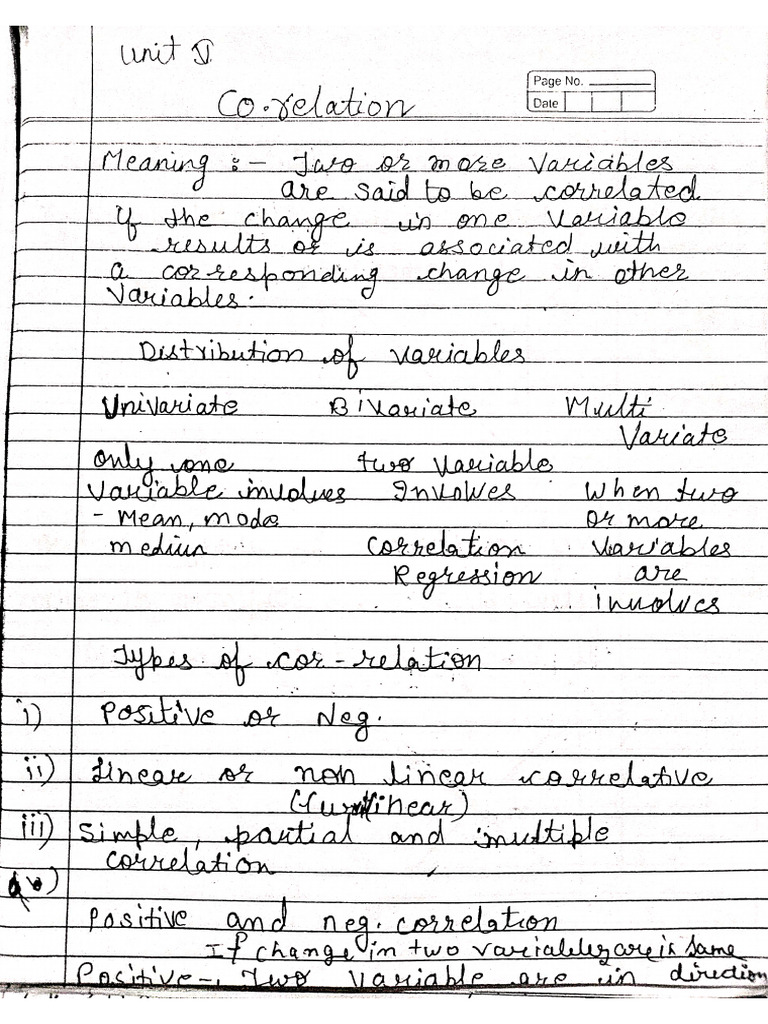 Unit V
Page No.
Co.relation
Date
Meaning :- Two or more variables
are said to be correlated
if the change in one variable
results or is associated with
a corresponding change in other
variables.
Distribution of variables
Univariate Bivariate Multi
Variate
only one two variable
variable involves Involves When two
- Mean, mode or more
medium correlation variables
Regression are
involves
Types of cor-relation
i) Positive or Neg.
ii) Linear or non linear correlative
linear)
iii) Simple, partial and multiple
correlation
Positive and neg. correlation
If change in two variables are is same
Positive -, Two variable are in direction